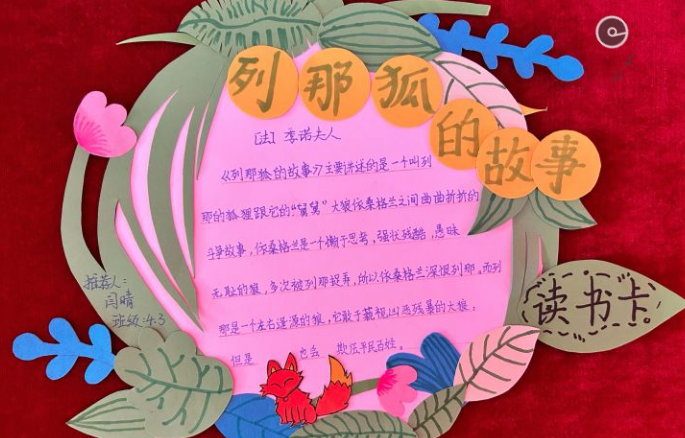 列那狐的故事
[法] 季诺夫人
《列那狐的故事》主要讲述的是一个叫列
那的狐狸跟它的“舅舅”大狼依桑格兰之间曲曲折折的
斗争故事,依桑格兰是一个懒于思考,强壮残酷,愚昧
无耻的狼,多次被列那捉弄,所以依桑格兰深恨列那。而列
那是一个左右逢源的狼,它敢于藐视凶恶残暴的大狼,
但是 也会 欺压平民百姓。
推荐人:
闫晴
班级:4.3
读书卡